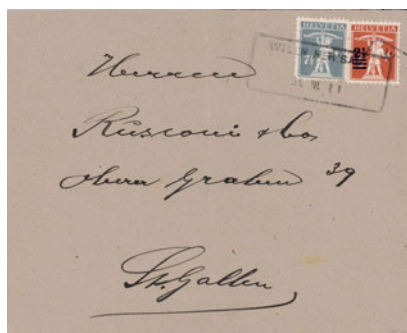 HELVETIA HELVETIA
7½ 2½
Herren
Rusconi & Co
Oberer Graben 39
St. Gallen